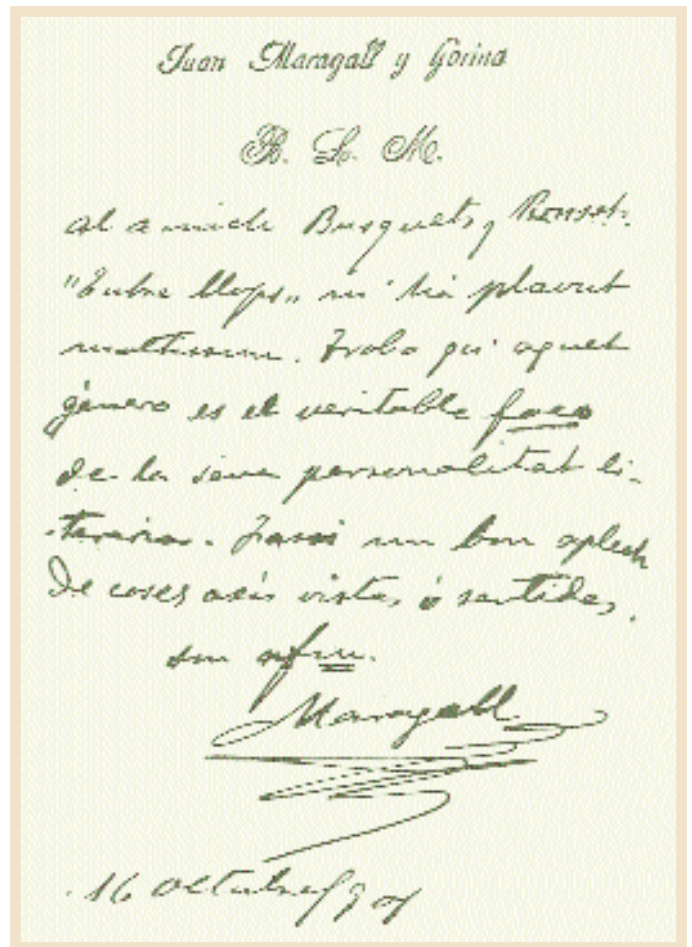 Juan Maragall y Gorina
B. L. M.
al amich Busquets y Punset.
"Entre llops" m'ha plavut
moltissim. Trobo qu' aquet
género es el veritable foco
de la seva personalitat li-
teraria. Fassi un bon aplech
de coses axis vistas ó sentides.
son afm.
Maragall
16 octubre